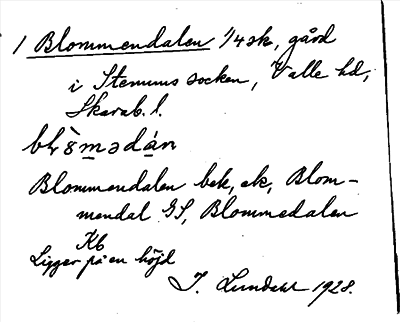 1 Blommendalen 1/4 sk, gård
i Stenums socken, Valle hd,
Skarab. l.
Blommendalen bek, ek, Blom-
mendal GS, Blommedalen
Kb
Ligger på en höjd
J. Lundahl 1928.